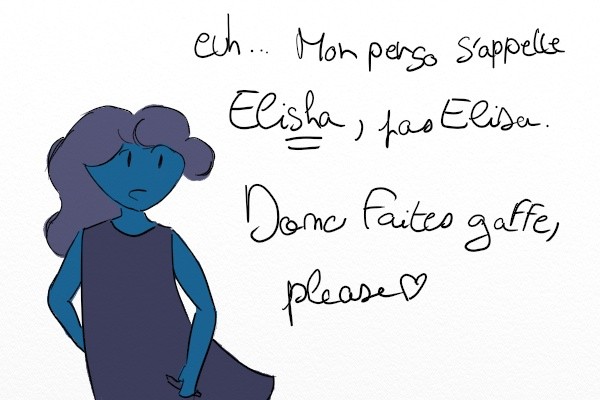 euh... Mon perso s'appelle
Elisha, pas Elisa.
Donc faites gaffe,
please♡